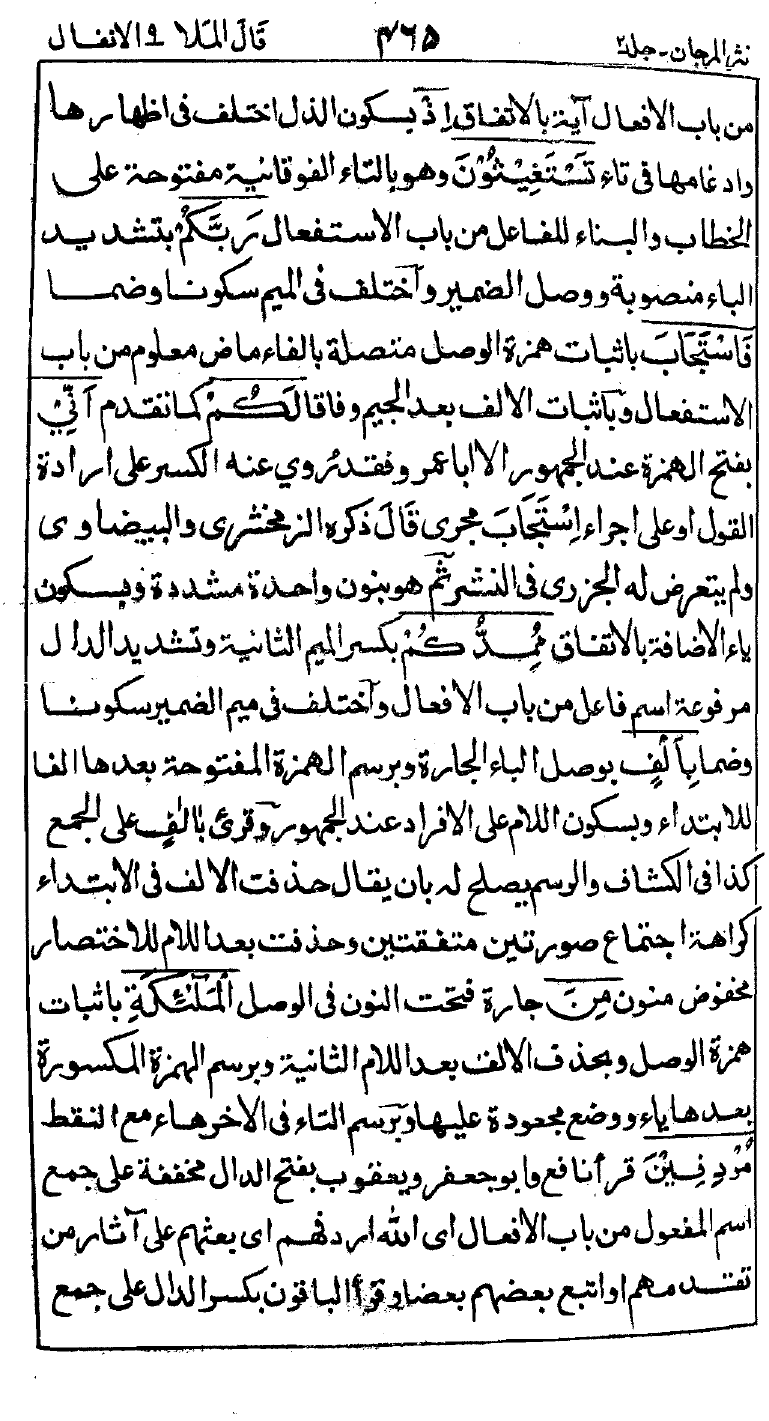 نثر المرجان - جلد ٢ ٤٦٥ قال الملا ٩ الانفال
من باب الافعال آية بالاتفاق إِذْ بسكون الذال اختلف فى اظهارها
وادغامها فى تاء تَسْتَغِيْثُوْنَ وهو بالتاء الفوقانية مفتوحة على
الخطاب والبناء للفاعل من باب الاستفعال رَبَّكُمْ بتشديد
الباء منصوبة ووصل الضمير واختلف فى الميم سكونا وضما
فَاسْتَجَابَ باثبات همزة الوصل متصلة بالفاء ماض معلوم من باب
الاستفعال وباثبات الالف بعد الجيم وفاقا لَكُمْ كما تقدم أَنِّيْ
بفتح الهمزة عند الجمهور الا ابا عمرو فقد روي عنه الكسر على ارادة
القول او على اجراء اِسْتَجَابَ مجرى قَالَ ذكره الزمخشرى والبيضاوى
ولم يتعرض له الجزرى فى النشر ثم هو بنون واحدة مشددة وبسكون
ياء الاضافة بالاتفاق مُمِدُّكُمْ بكسر الميم الثانية وتشديد الدال
مرفوعة اسم فاعل من باب الافعال واختلف فى ميم الضمير سكونا
وضما بِأَلْفٍ بوصل الباء الجارة وبرسم الهمزة المفتوحة بعدها الفا
للابتداء وبسكون اللام على الافراد عند الجمهور وقرئ بالٰفٍ على الجمع
كذا فى الكشاف والرسم يصلح له بان يقال حذفت الالف فى الابتداء
كراهة اجتماع صورتين متفقتين وحذفت بعد اللام للاختصار
مخفوض منون مِنَ جارة فتحت النون فى الوصل الْمَلٰٓئِكَةِ باثبات
همزة الوصل وبحذف الالف بعد اللام الثانية وبرسم الهمزة المكسورة
بعدها ياء ووضع مجعودة عليها وبرسم التاء فى الاخر هاء مع النقط
مُرْدِفِيْنَ قرأ نافع وابو جعفر ويعقوب بفتح الدال مخففة على جمع
اسم المفعول من باب الافعال اى الله اردفهم اى بعثهم على آثار من
تقتدمهم او اتبع بعضهم بعضا وقرأ الباقون بكسر الدال على جمع